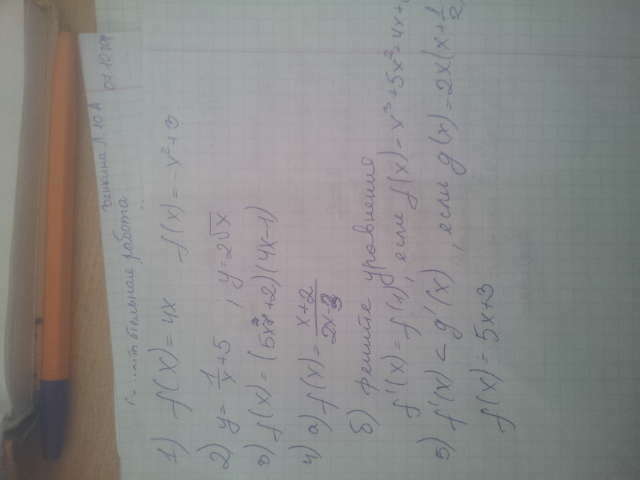 Л.Ю.А
работа
1) f(x)=4x f(x)=-x²+3
2) y=1/x+5, y=2√x
3) f(x)=(5x²+2)(4x-1)
4) а) f(x)=(x+2)/(2x-3)
б) решите уравнения
f'(x)=f(1), если f(x)=x³+5x²+4x+
5) f'(x)<g'(x), если g(x)=2x(x+1/2
f(x)=5x+3